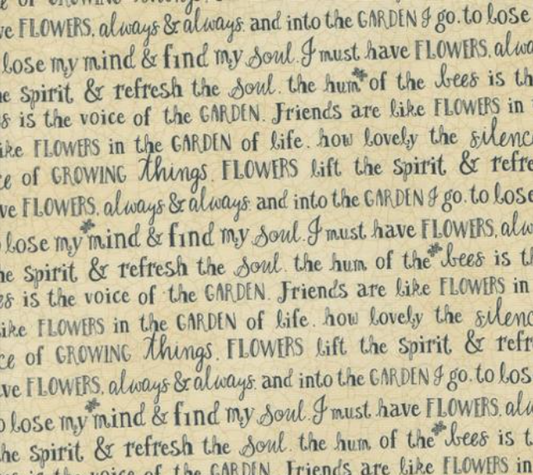 of GROWING things.
ve FLOWERS, always & always. and into the GARDEN I go. to lose
lose my mind & find my soul. I must have FLOWERS, alwa
he spirit & refresh the soul. the hum of the bees is th
s is the voice of the GARDEN. Friends are like FLOWERS in
ike FLOWERS in the GARDEN of life. how lovely the silenc
ce of GROWING things. FLOWERS lift the spirit & refre
ve FLOWERS, always & always. and into the GARDEN I go. to lose
lose my mind & find my soul. I must have FLOWERS, alw
he spirit & refresh the soul. the hum of the bees is th
es is the voice of the GARDEN. Friends are like FLOWERS in
ike FLOWERS in the GARDEN of life. how lovely the silenc
ce of GROWING things. FLOWERS lift the spirit & refr
ve FLOWERS, always & always. and into the GARDEN I go. to los
o lose my mind & find my soul. I must have FLOWERS, alw
he spirit & refresh the soul. the hum of the bees is t
is the voice of the GARDEN. Friends are like FLOWERS in